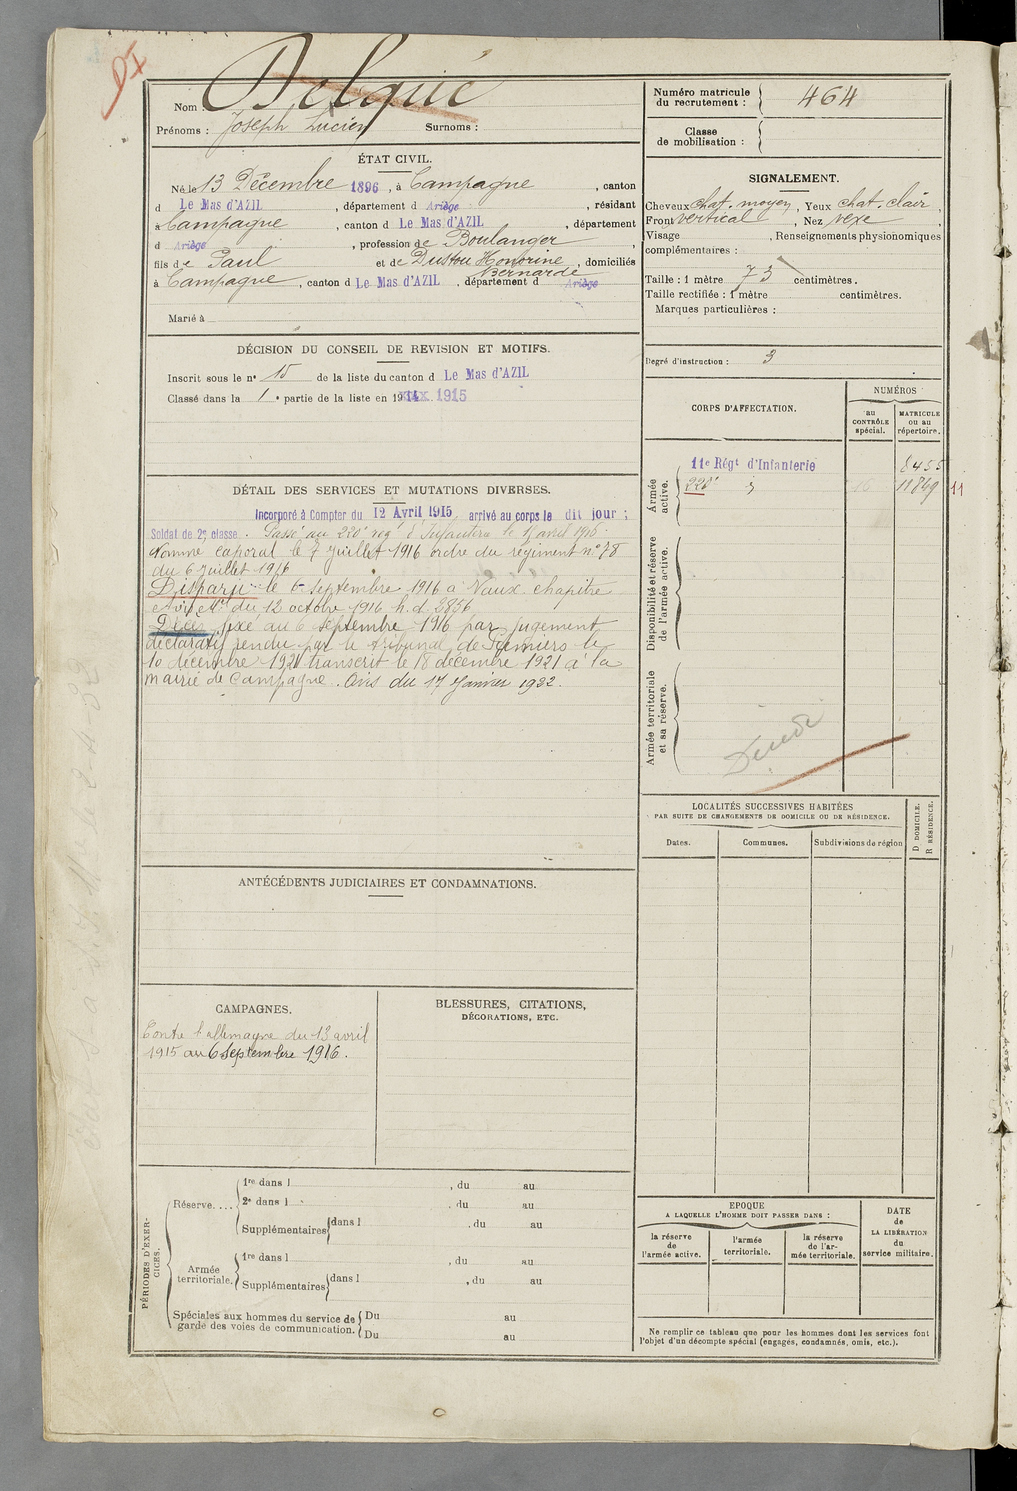 DI
Nom : Delquié
Prénoms : Joseph Lucien Surnoms :
ÉTAT CIVIL.
Né le 13 Décembre 1896, à Campagne, canton
d Le Mas d'AZIL, département d Ariège, résidant
à Campagne, canton d Le Mas d'AZIL, département
d Ariège, profession de Boulanger,
fils de Paul et de Dustou Honorine Bernarde, domiciliés
à Campagne, canton d Le Mas d'AZIL, département d Ariège
Marié à
DÉCISION DU CONSEIL DE REVISION ET MOTIFS.
Inscrit sous le n° 15 de la liste du canton d Le Mas d'AZIL
Classé dans la 1e partie de la liste en 1914. 1915
DÉTAIL DES SERVICES ET MUTATIONS DIVERSES.
Incorporé à Compter du 12 Avril 1915, arrivé au corps le dit jour ;
Soldat de 2e classe. Passé au 220e rég d'Infanterie le avril 1916.
Nommé caporal le 7 Juillet 1916 ordre du régiment n° 78
du 6 juillet 1916
Disparu le 6 septembre 1916 à Vaux chapitre
avis Mel du 12 octobre 1916 h. d. 2856
Décès fixé au 6 septembre 1916 par jugement
déclaratif rendu par le tribunal de Pamiers le
10 décembre 1921 transcrit le 18 décembre 1921 à la
mairie de Campagne. Avis du 17 Janvier 1922.
ANTÉCÉDENTS JUDICIAIRES ET CONDAMNATIONS.
CAMPAGNES.
Contre l'allemagne du 13 avril
1915 au 6 septembre 1916.
BLESSURES, CITATIONS,
DÉCORATIONS, ETC.
PÉRIODES D'EXERCICES.
Réserve....
1re dans l , du au
2e dans l , du au
Supplémentaires dans l , du au
Armée territoriale.
1re dans l , du au
Supplémentaires dans l , du au
Spéciales aux hommes du service de
garde des voies de communication.
Du au
Du au
Numéro matricule
du recrutement : 464
Classe
de mobilisation :
SIGNALEMENT.
Cheveux chat. moyen, Yeux chat. clair,
Front vertical, Nez vexe,
Visage , Renseignements physionomiques
complémentaires :
Taille : 1 mètre 73 centimètres.
Taille rectifiée : 1 mètre centimètres.
Marques particulières :
Degré d'instruction : 3
CORPS D'AFFECTATION.
NUMÉROS
au
CONTRÔLE
spécial.
MATRICULE
ou au
répertoire.
Armée
active.
11e Régt d'Infanterie 8455
220e 11849 11
Disponibilité et réserve
de l'armée active.
Armée territoriale
et sa réserve.
LOCALITÉS SUCCESSIVES HABITÉES
PAR SUITE DE CHANGEMENTS DE DOMICILE OU DE RÉSIDENCE.
Dates.
Communes.
Subdivisions de région
D DOMICILE.
R RÉSIDENCE.
EPOQUE
A LAQUELLE L'HOMME DOIT PASSER DANS :
la réserve
de
l'armée active.
l'armée
territoriale.
la réserve
de l'ar-
mée territoriale.
DATE
de
LA LIBÉRATION
du
service militaire.
Ne remplir ce tableau que pour les hommes dont les services font
l'objet d'un décompte spécial (engagés, condamnés, omis, etc.).